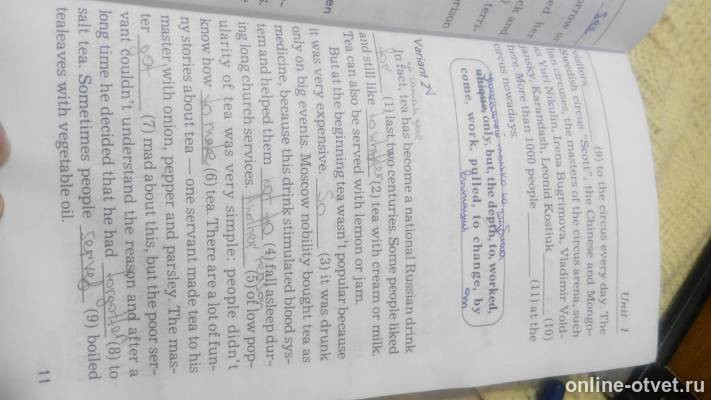 Unit 1
(9) to the circus every day. The
visitors
Swedish circus "Scott", the Chinese and Mongo-
lian circuses, the masters of the circus arena, such
as Yuri Nikulin, Irena Bugrimova, Vladimir Vold-
jansky, Karandash, Leonid Kostiuk (10)
here. More than 1000 people (11) at the
circus nowadays.
unique, only, but, the depth, to, worked,
come, work, pulled, to change, by
Variant 2
In fact, tea has become a national Russian drink
for (1) last two centuries. Some people liked
and still like (2) tea with cream or milk.
Tea can also be served with lemon or jam.
But at the beginning tea wasn't popular because
it was very expensive. So (3) it was drunk
only on big events. Moscow nobility bought tea as
medicine, because this drink stimulated blood sys-
tem and helped them not to (4) fall asleep dur-
ing long church services. Another reason (5) of low pop-
ularity of tea was very simple: people didn't
know how to make (6) tea. There are a lot of fun-
ny stories about tea — one servant made tea to his
master with onion, pepper and parsley. The mas-
ter got (7) mad about this, but the poor ser-
vant couldn't understand the reason and after a
long time he decided that he had forgotten (8) to
salt tea. Sometimes people served (9) boiled
tealeaves with vegetable oil.
11
online-otvet.ru